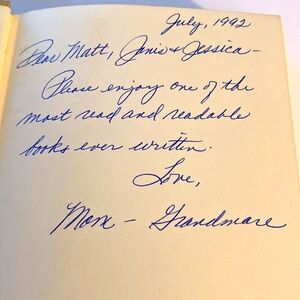 July, 1992
Dear Matt, Janis & Jessica -
Please enjoy one of the
most read and readable
books ever written.
Love,
Mom - Grandmare